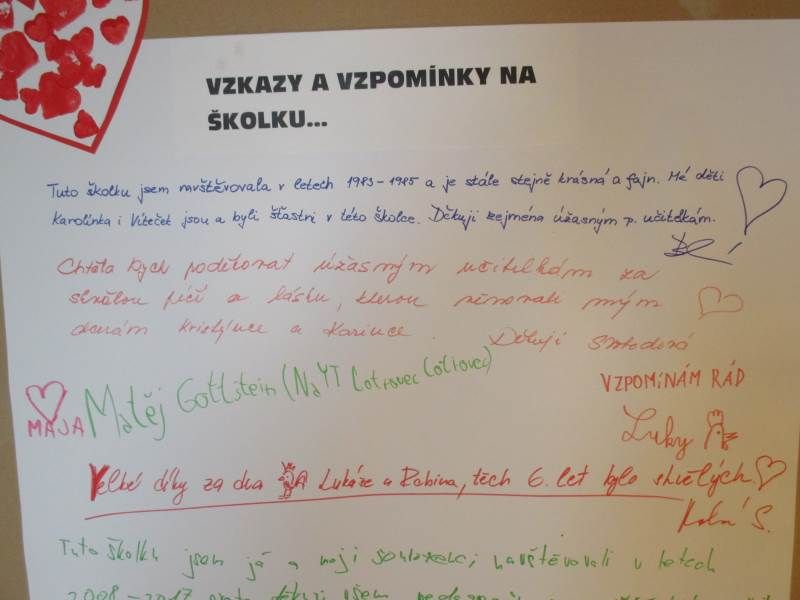 VZKAZY A VZPOMÍNKY NA
ŠKOLKU...
Tuto školku jsem navštěvovala v letech 1983-1985 a je stále stejně krásná a fajn. Mé děti
Karolínka i Víteček jsou a byli šťastni v této školce. Děkuji zejména úžasným p. učitelkám.
Chtěla bych poděkovat úžasným učitelkám za
skvělou péči a lásku, kterou věnovali mým
dcerám Kristýnce a Karince. Děkuji
MÁJA Matěj Gottstein (Na YT Lotrovec Lotrovec)
VZPOMÍNÁM RÁD
Luky
Velké díky za dva Lukáše a Robina, těch 6. let bylo skvělých
S.
Tuto školku jsem já a moji sourozenci navštěvovali v letech
2008-2017